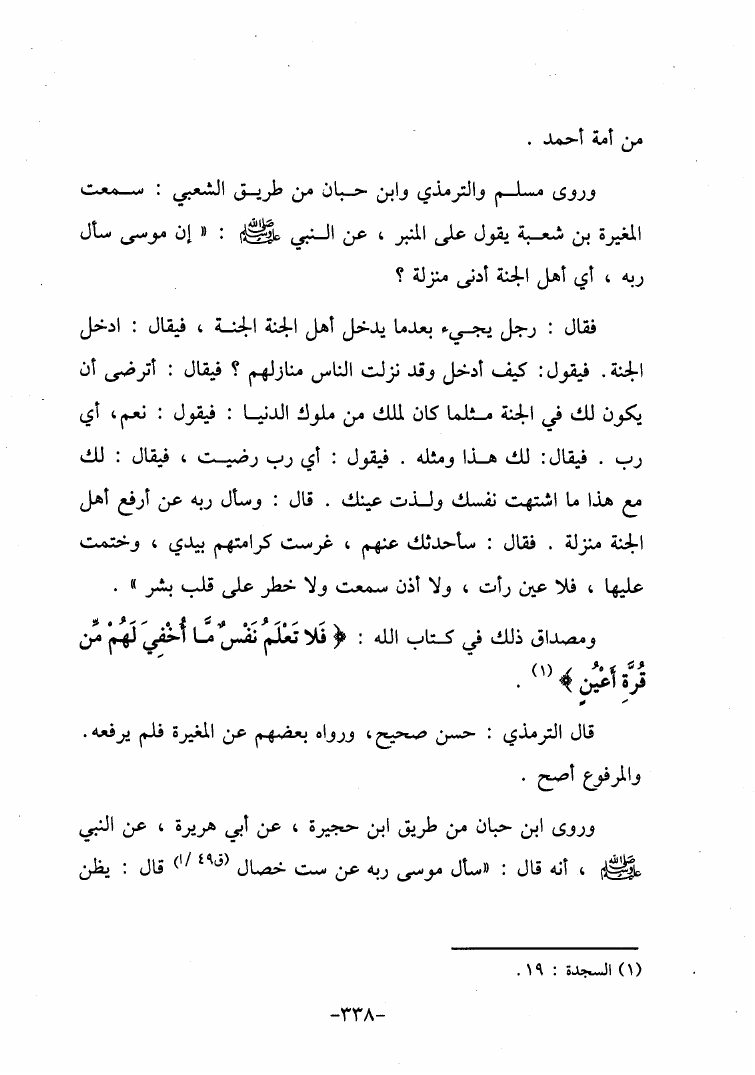 من أمة أحمد .
وروى مسلم والترمذي وابن حبان من طريق الشعبي : سمعت
المغيرة بن شعبة يقول على المنبر ، عن النبي ﷺ : « إن موسى سأل
ربه ، أي أهل الجنة أدنى منزلة ؟
فقال : رجل يجيء بعدما يدخل أهل الجنة الجنة ، فيقال : ادخل
الجنة . فيقول: كيف أدخل وقد نزلت الناس منازلهم ؟ فيقال : أترضى أن
يكون لك في الجنة مثلما كان لملك من ملوك الدنيا : فيقول : نعم، أي
رب . فيقال: لك هذا ومثله . فيقول : أي رب رضيت ، فيقال : لك
مع هذا ما اشتهت نفسك ولذت عينك . قال : وسأل ربه عن أرفع أهل
الجنة منزلة . فقال : سأحدثك عنهم ، غرست كرامتهم بيدي ، وختمت
عليها ، فلا عين رأت ، ولا أذن سمعت ولا خطر على قلب بشر » .
ومصداق ذلك في كتاب الله : ﴿ فَلَا تَعْلَمُ نَفْسٌ مَّا أُخْفِيَ لَهُمْ مِّن
قُرَّةِ أَعْيُنٍ ﴾ (١) .
قال الترمذي : حسن صحيح، ورواه بعضهم عن المغيرة فلم يرفعه.
والمرفوع أصح .
وروى ابن حبان من طريق ابن حجيرة ، عن أبي هريرة ، عن النبي
ﷺ ، أنه قال : «سأل موسى ربه عن ست خصال (ق٤٩ /أ) قال : يظن
(١) السجدة : ١٩ .
-٣٣٨-